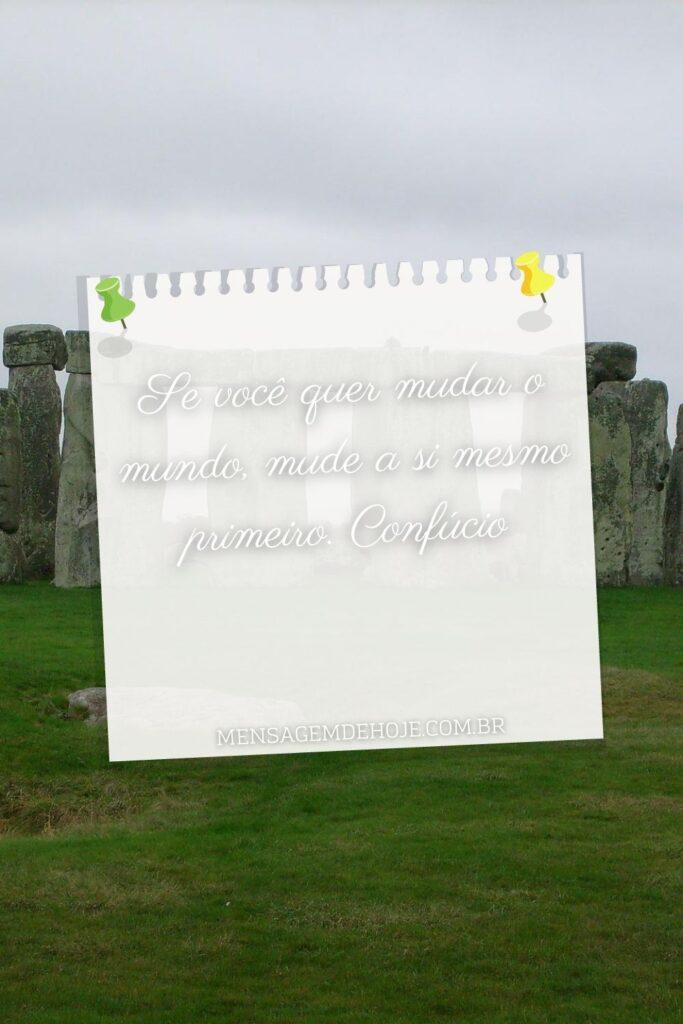 Se você quer mudar o
mundo, mude a si mesmo
primeiro. Confúcio
MENSAGEMDEHOJE.COM.BR